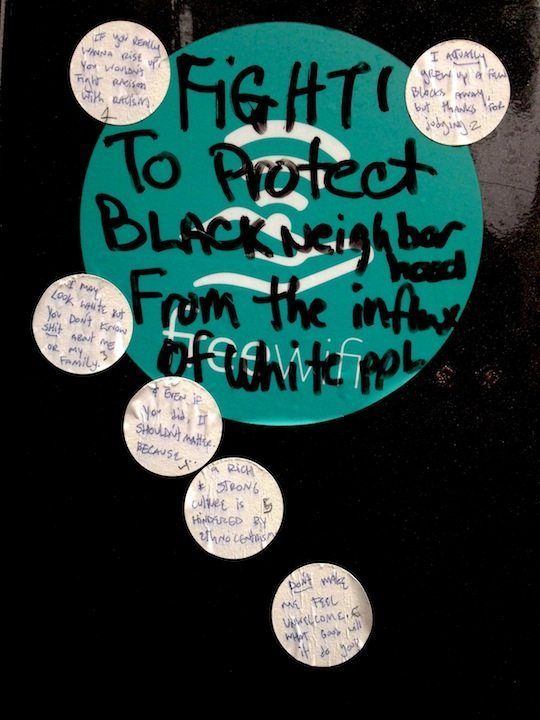 FIGHT!
To Protect
BLACK Neighbor
hood
From the influx
Of White ppl
free wifi
IF YOU REALLY
WANNA RISE UP
YOU WOULDN'T
FIGHT RACISM
WITH RACISM
1
I ACTUALLY
GREW UP A FEW
BLOCKS AWAY
but thanks for
judging. 2
I MAY
LOOK WHITE BUT
YOU DON'T KNOW
SHIT ABOUT ME
OR MY
FAMILY. 3
& EVEN IF
YOU did, IT
SHOULDN'T MATTER.
BECAUSE 4
A RICH
& STRONG
CULTURE IS 5
HINDERED BY
ETHNOCENTRISM
DON'T MAKE
ME FEEL
UNWELCOME. 6
WHAT GOOD will
it do you?